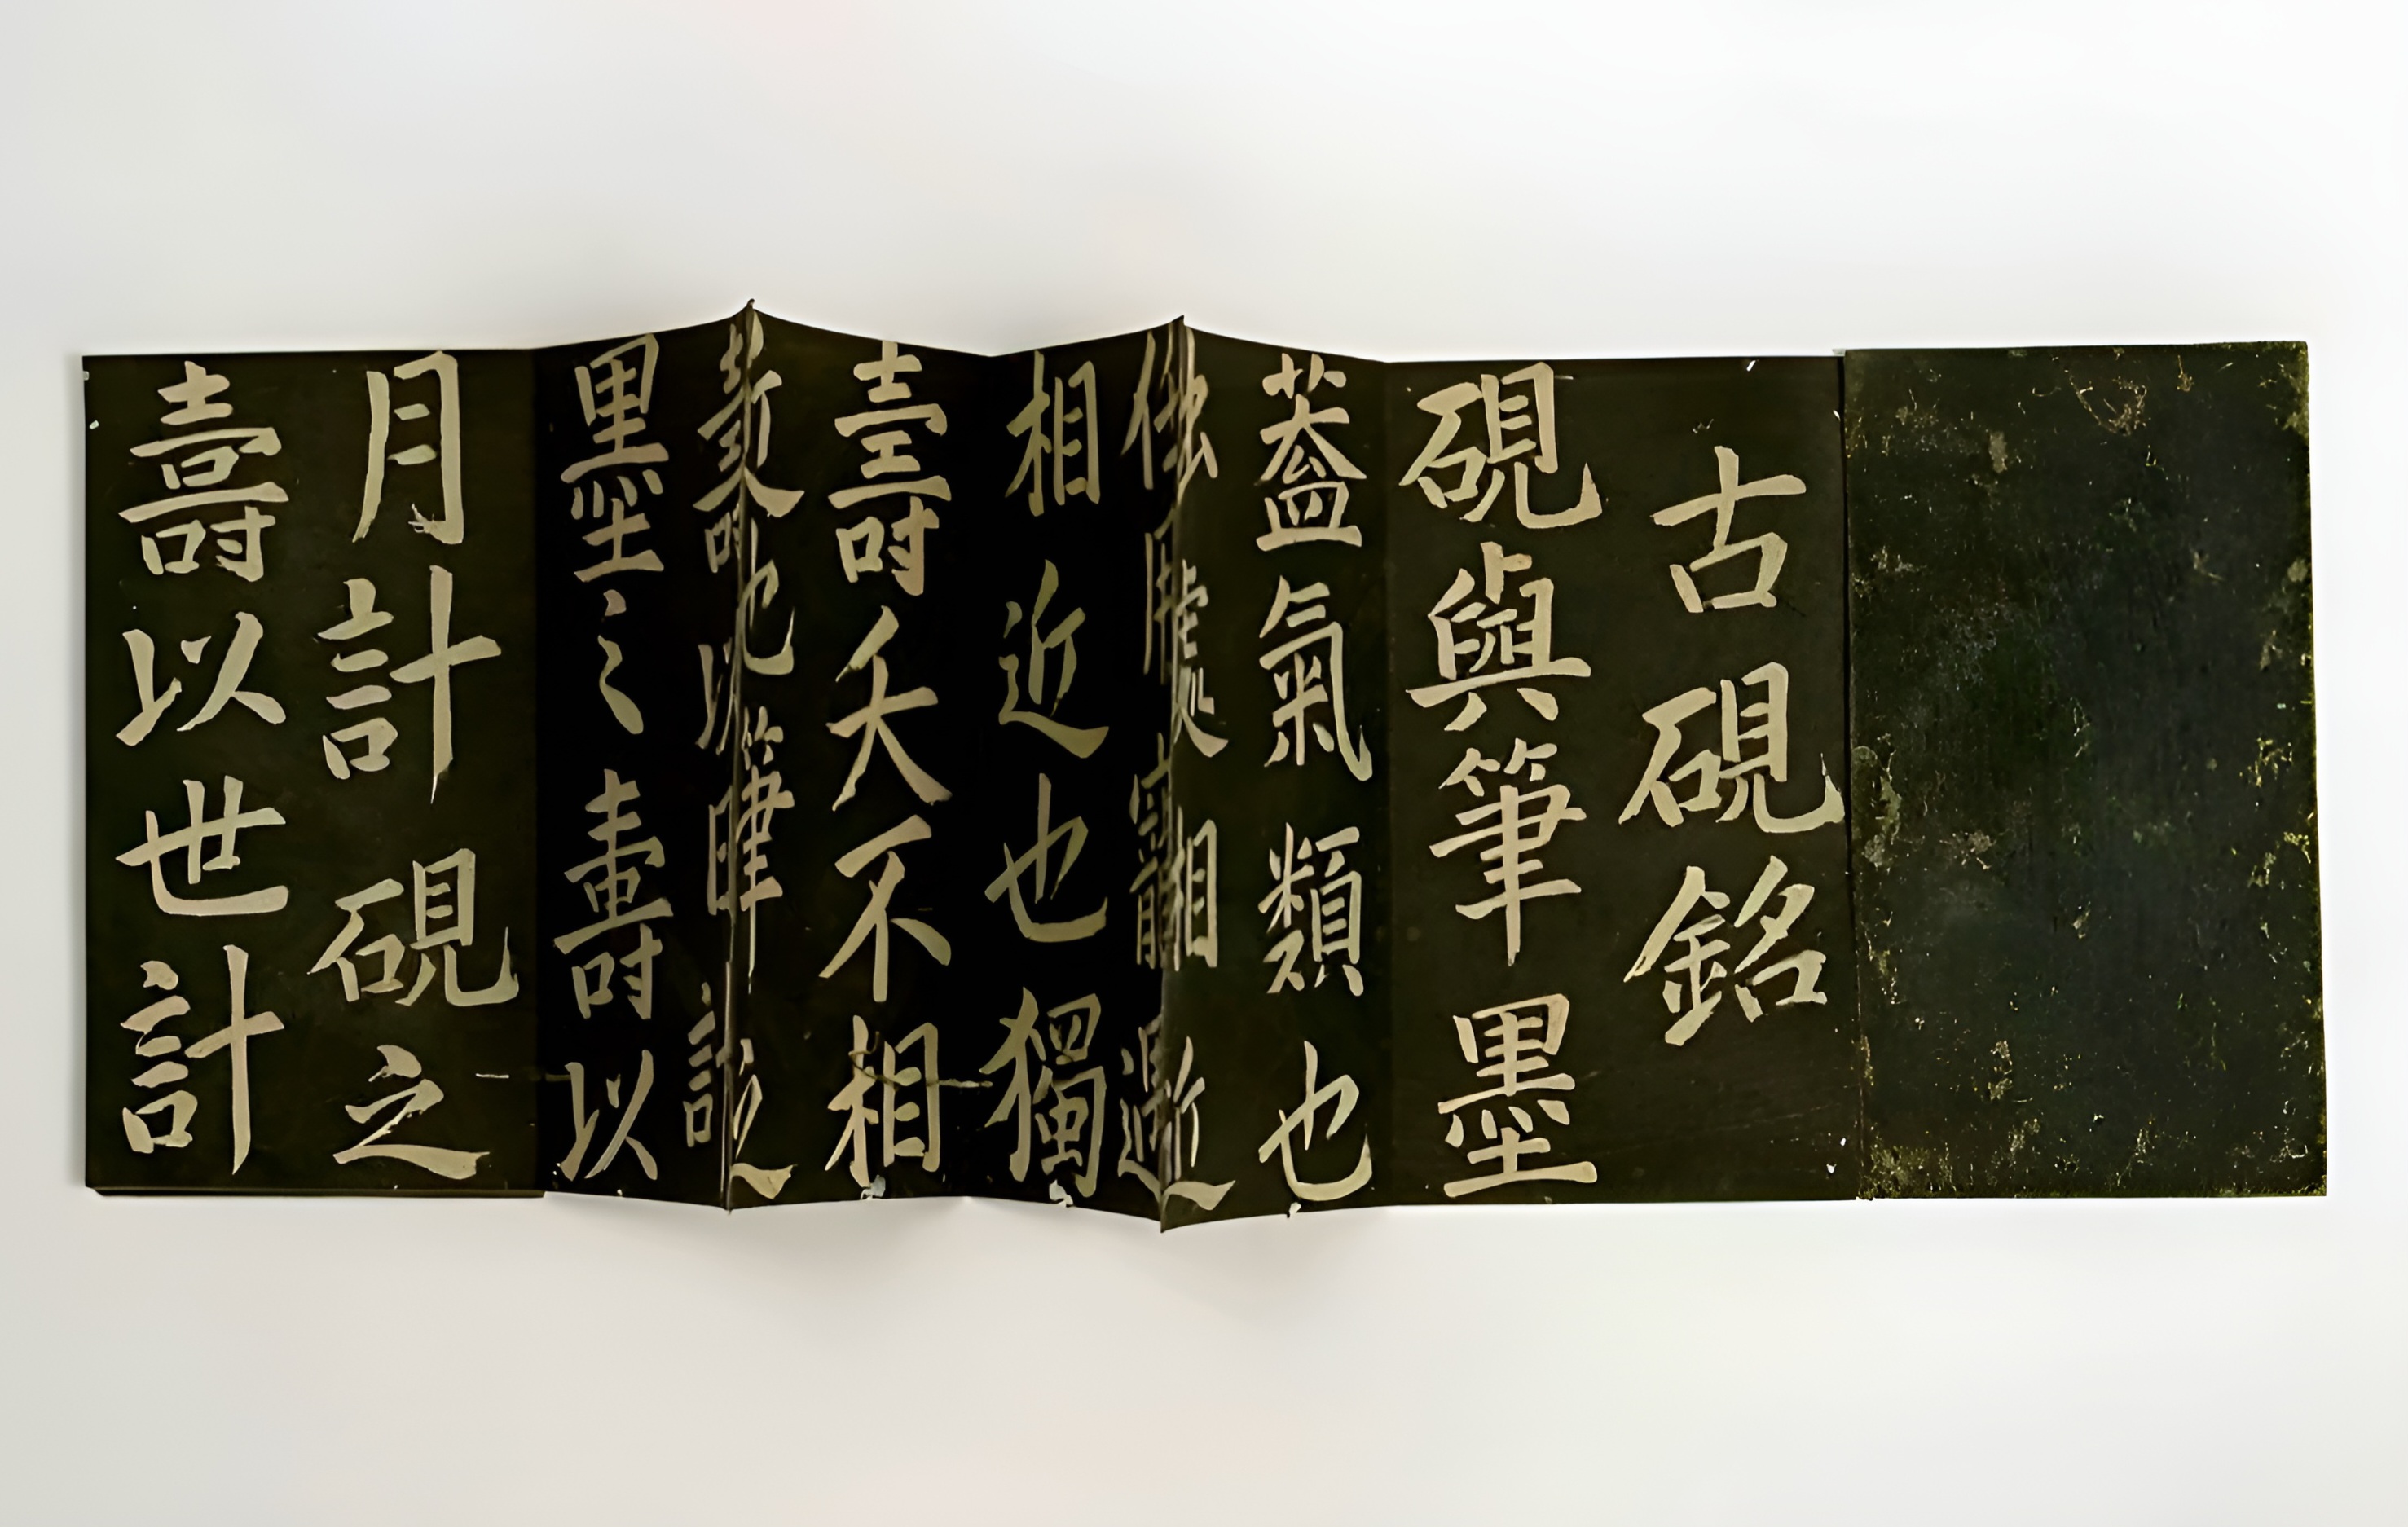 古硯銘
硯與筆墨
蓋氣類也
處相
相近也獨
壽夭不相
也筆之
墨之壽以
月計硯之
壽以世計